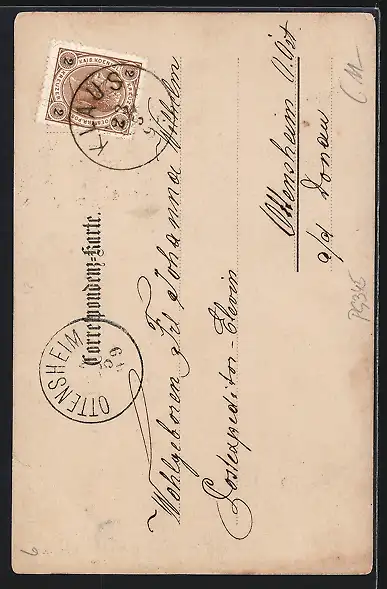 Correspondenz-Karte.
KAIS. KOENIGL.
2 2 2 2
KLAUS
OTTENSHEIM
Wohlgeboren Frl Johanna Wilhelm
Postexpeditor-Elevin
Ottensheim O.Öst.
a/d Donau
PG345
6